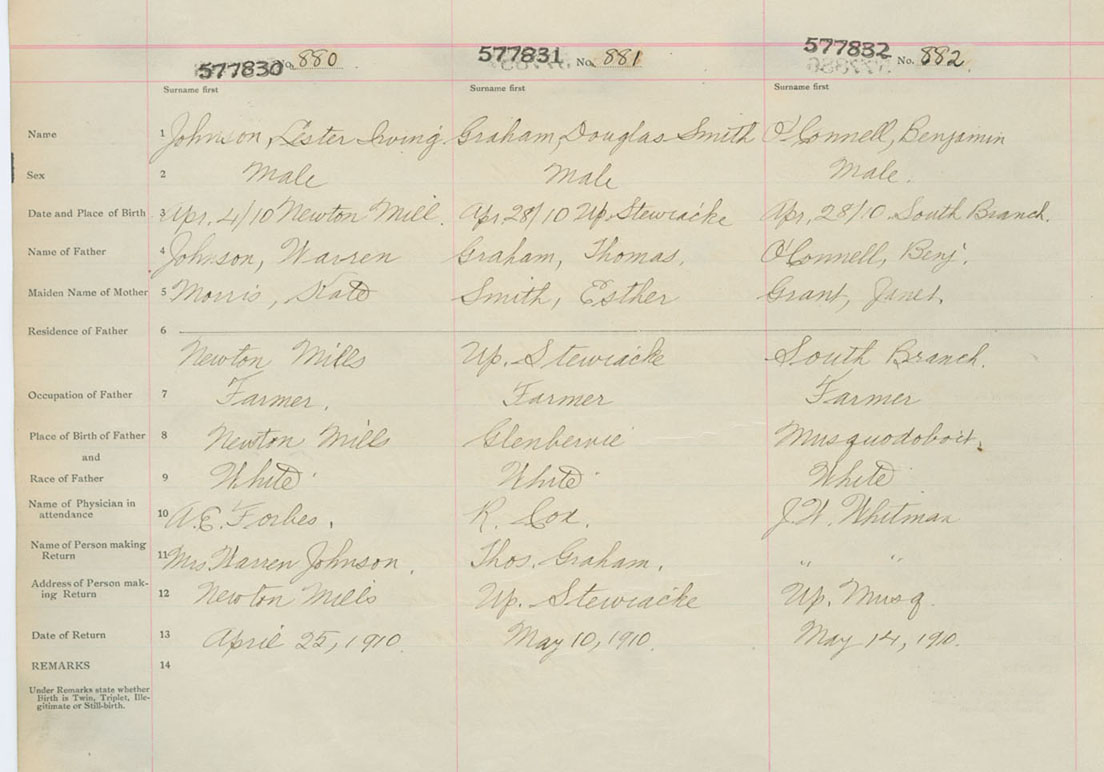 577830 No. 880 577831 No. 881 577832 No. 882
Surname first Surname first Surname first
Name 1 Johnson, Lester Irving Graham, Douglas Smith O'Connell, Benjamin
Sex 2 Male Male Male.
Date and Place of Birth 3 Apr. 4/10 Newton Mill. Apr. 28/10 Up. Stewiacke Apr. 28/10 South Branch.
Name of Father 4 Johnson, Warren Graham, Thomas. O'Connell, Benj.
Maiden Name of Mother 5 Morris, Kate Smith, Esther Grant, Janet.
Residence of Father 6
Newton Mills Up. Stewiacke South Branch.
Occupation of Father 7 Farmer. Farmer Farmer
Place of Birth of Father 8 Newton Mills Glenbervie Musquodoboit.
and
Race of Father 9 White White White
Name of Physician in
attendance 10 A.E. Forbes. R. Cox. J.H. Whitman
Name of Person making
Return 11 Mrs Warren Johnson. Thos. Graham. " "
Address of Person mak-
ing Return 12 Newton Mills Up. Stewiacke Up. Musq.
Date of Return 13 April 25, 1910. May 10, 1910. May 14, 190.
REMARKS 14
Under Remarks state whether
Birth is Twin, Triplet, Ille-
gitimate or Still-birth.